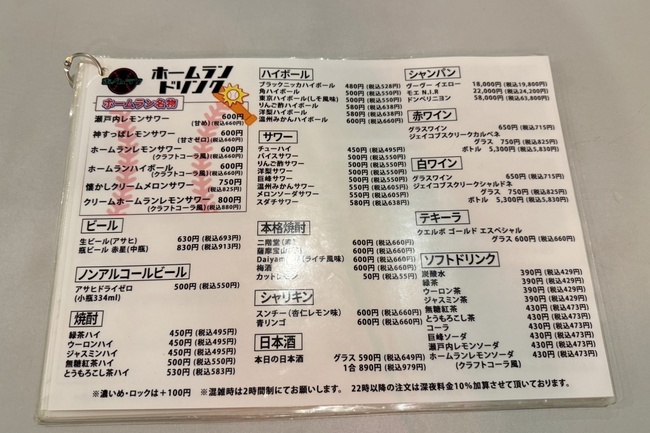 ホームラン
ドリンク
ホームラン名物
瀬戸内レモンサワー 600円
(甘め)(税込660円)
神すっぱレモンサワー 600円
(甘さゼロ)(税込660円)
ホームランレモンサワー 600円
(クラフトコーラ風)(税込660円)
ホームランハイボール 600円
(クラフトコーラ風)(税込660円)
懐かしクリームメロンサワー 750円
(税込825円)
クリームホームランレモンサワー 800円
(クラフトコーラ風)(税込880円)
ビール
生ビール(アサヒ) 630円(税込693円)
瓶ビール 赤星(中瓶) 830円(税込913円)
ノンアルコールビール
アサヒドライゼロ 500円(税込550円)
(小瓶334ml)
焼酎
緑茶ハイ 450円(税込495円)
ウーロンハイ 450円(税込495円)
ジャスミンハイ 450円(税込495円)
無糖紅茶ハイ 500円(税込550円)
とうもろこし茶ハイ 530円(税込583円)
ハイボール
ブラックニッカハイボール 480円(税込528円)
角ハイボール 500円(税込550円)
東京ハイボール(しそ風味) 500円(税込550円)
りんご酢ハイボール 580円(税込638円)
洋梨ハイボール 600円(税込660円)
温州みかんハイボール 600円(税込660円)
サワー
チューハイ 450円(税込495円)
バイスサワー 500円(税込550円)
りんご酢サワー 500円(税込550円)
洋梨サワー 500円(税込550円)
巨峰サワー 500円(税込550円)
温州みかんサワー 550円(税込605円)
メロンソーダサワー 550円(税込605円)
スダチサワー 580円(税込638円)
本格焼酎
二階堂(麦) 600円(税込660円)
薩摩宝山 600円(税込660円)
Daiyame(ライチ風味) 600円(税込660円)
梅酒 600円(税込660円)
カットレモン 50円(税込55円)
シャリキン
スンチー(杏仁レモン味) 600円(税込660円)
青リンゴ 600円(税込660円)
日本酒
本日の日本酒 グラス 590円(税込649円)
1合 890円(税込979円)
シャンパン
ヴーヴー イエロー 18,000円(税込19,800円)
モエ N.I.R 22,000円(税込24,200円)
ドンペリニヨン 58,000円(税込63,800円)
赤ワイン
グラスワイン 650円(税込715円)
ジェイコブスクリークカルベネ
グラス 750円(税込825円)
ボトル 5,300円(税込5,830円)
白ワイン
グラスワイン 650円(税込715円)
ジェイコブスクリークシャルドネ
グラス 750円(税込825円)
ボトル 5,300円(税込5,830円)
テキーラ
クエルボ ゴールド エスペシャル
グラス 600円(税込660円)
ソフトドリンク
炭酸水 390円(税込429円)
緑茶 390円(税込429円)
ウーロン茶 390円(税込429円)
ジャスミン茶 390円(税込429円)
無糖紅茶 430円(税込473円)
とうもろこし茶 430円(税込473円)
コーラ 430円(税込473円)
巨峰ソーダ 430円(税込473円)
瀬戸内レモンソーダ 430円(税込473円)
ホームランレモンソーダ 430円(税込473円)
(クラフトコーラ風)
※濃いめ・ロックは+100円 ※混雑時は2時間制にてお願いします。 22時以降の注文は深夜料金10%加算させて頂いております。